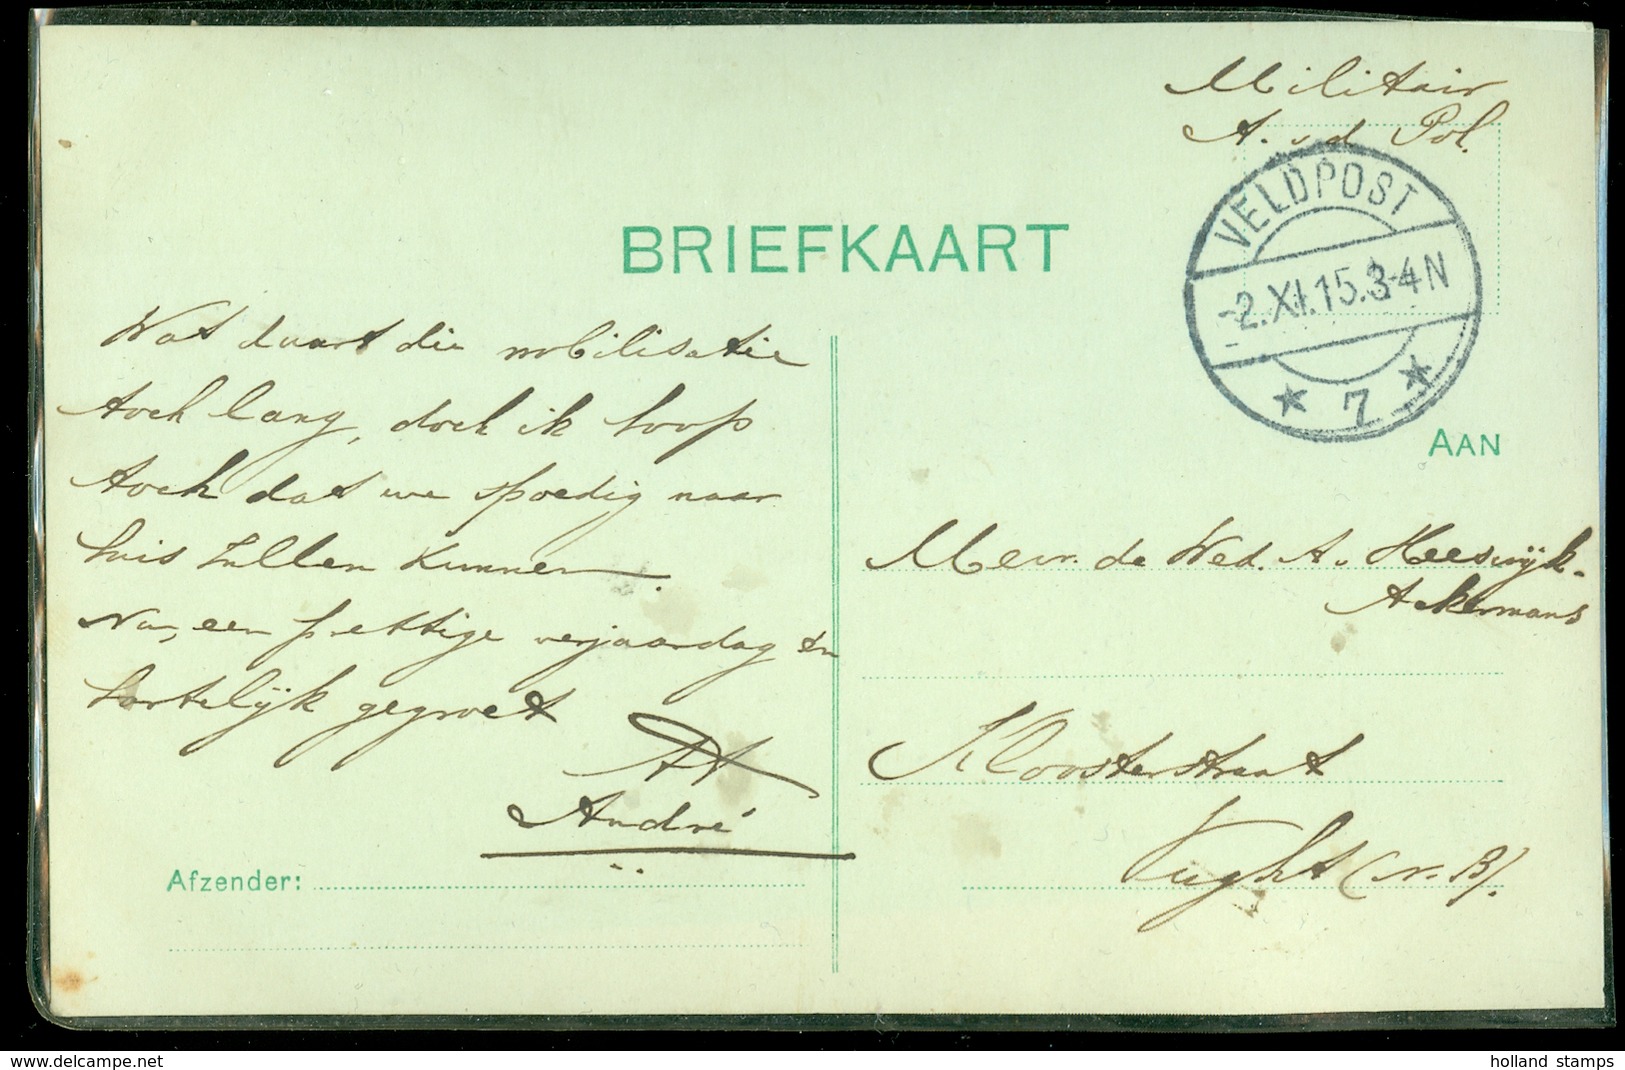 Militair
A. v d Pol.
VELDPOST
-2.XI.15.3-4N
* 7 *
BRIEFKAART
AAN
Wat duurt die mobilisatie
toch lang, doch ik hoop
toch dat we spoedig naar
huis zullen kunnen.
Nu, een prettige verjaardag en
hartelijk gegroet
André
Afzender:
Mevr. de Wed. A. v Heeswijk-
Ackermans
Kloosterstraat
Vught (N. B).
www.delcampe.net
holland stamps